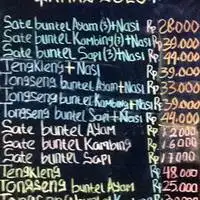 Sate buntel Ayam(3)+Nasi Rp 28.000
Sate buntel Kambing(3)+Nasi Rp 39.000
Sate buntel Sapi(3)+Nasi Rp 44.000
Tengkleng+Nasi Rp
Tongseng buntel Ayam+Nasi Rp 33.000
Tongseng buntel Kambing+Nasi Rp 39.000
Tongseng buntel Sapi+Nasi Rp 44.000
Sate buntel Ayam Rp 12000
Sate buntel Kambing Rp 16000
Sate buntel Sapi Rp 17000
Tengkleng Rp 48.000
Tongseng buntel Ayam Rp 25.000